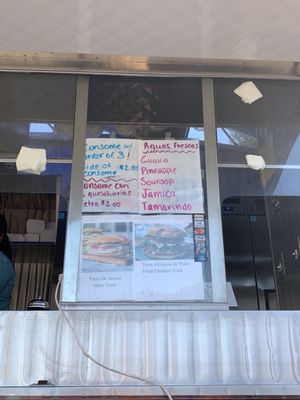 Consome w/
order of 3!
Side of $2.00
consome
Consome con
quesabirrias
extra $2.00
Aguas Frescas
Guava
Pineapple
Soursop
Jamica
Tamarindo
Torta De Jamon
Ham Torta
Torta Milanesa de Pollo
Fried Chicken Torta